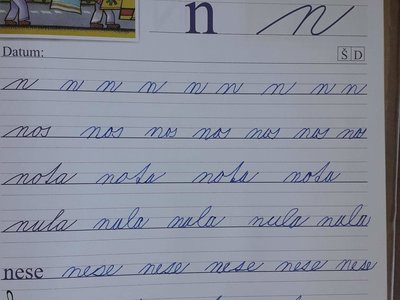 n n
Datum: Š D
n n n n n n n n n n
nos nos nos nos nos nos nos
nota nota nota nota
nula nula nula nula nula
nese nese nese nese nese nese